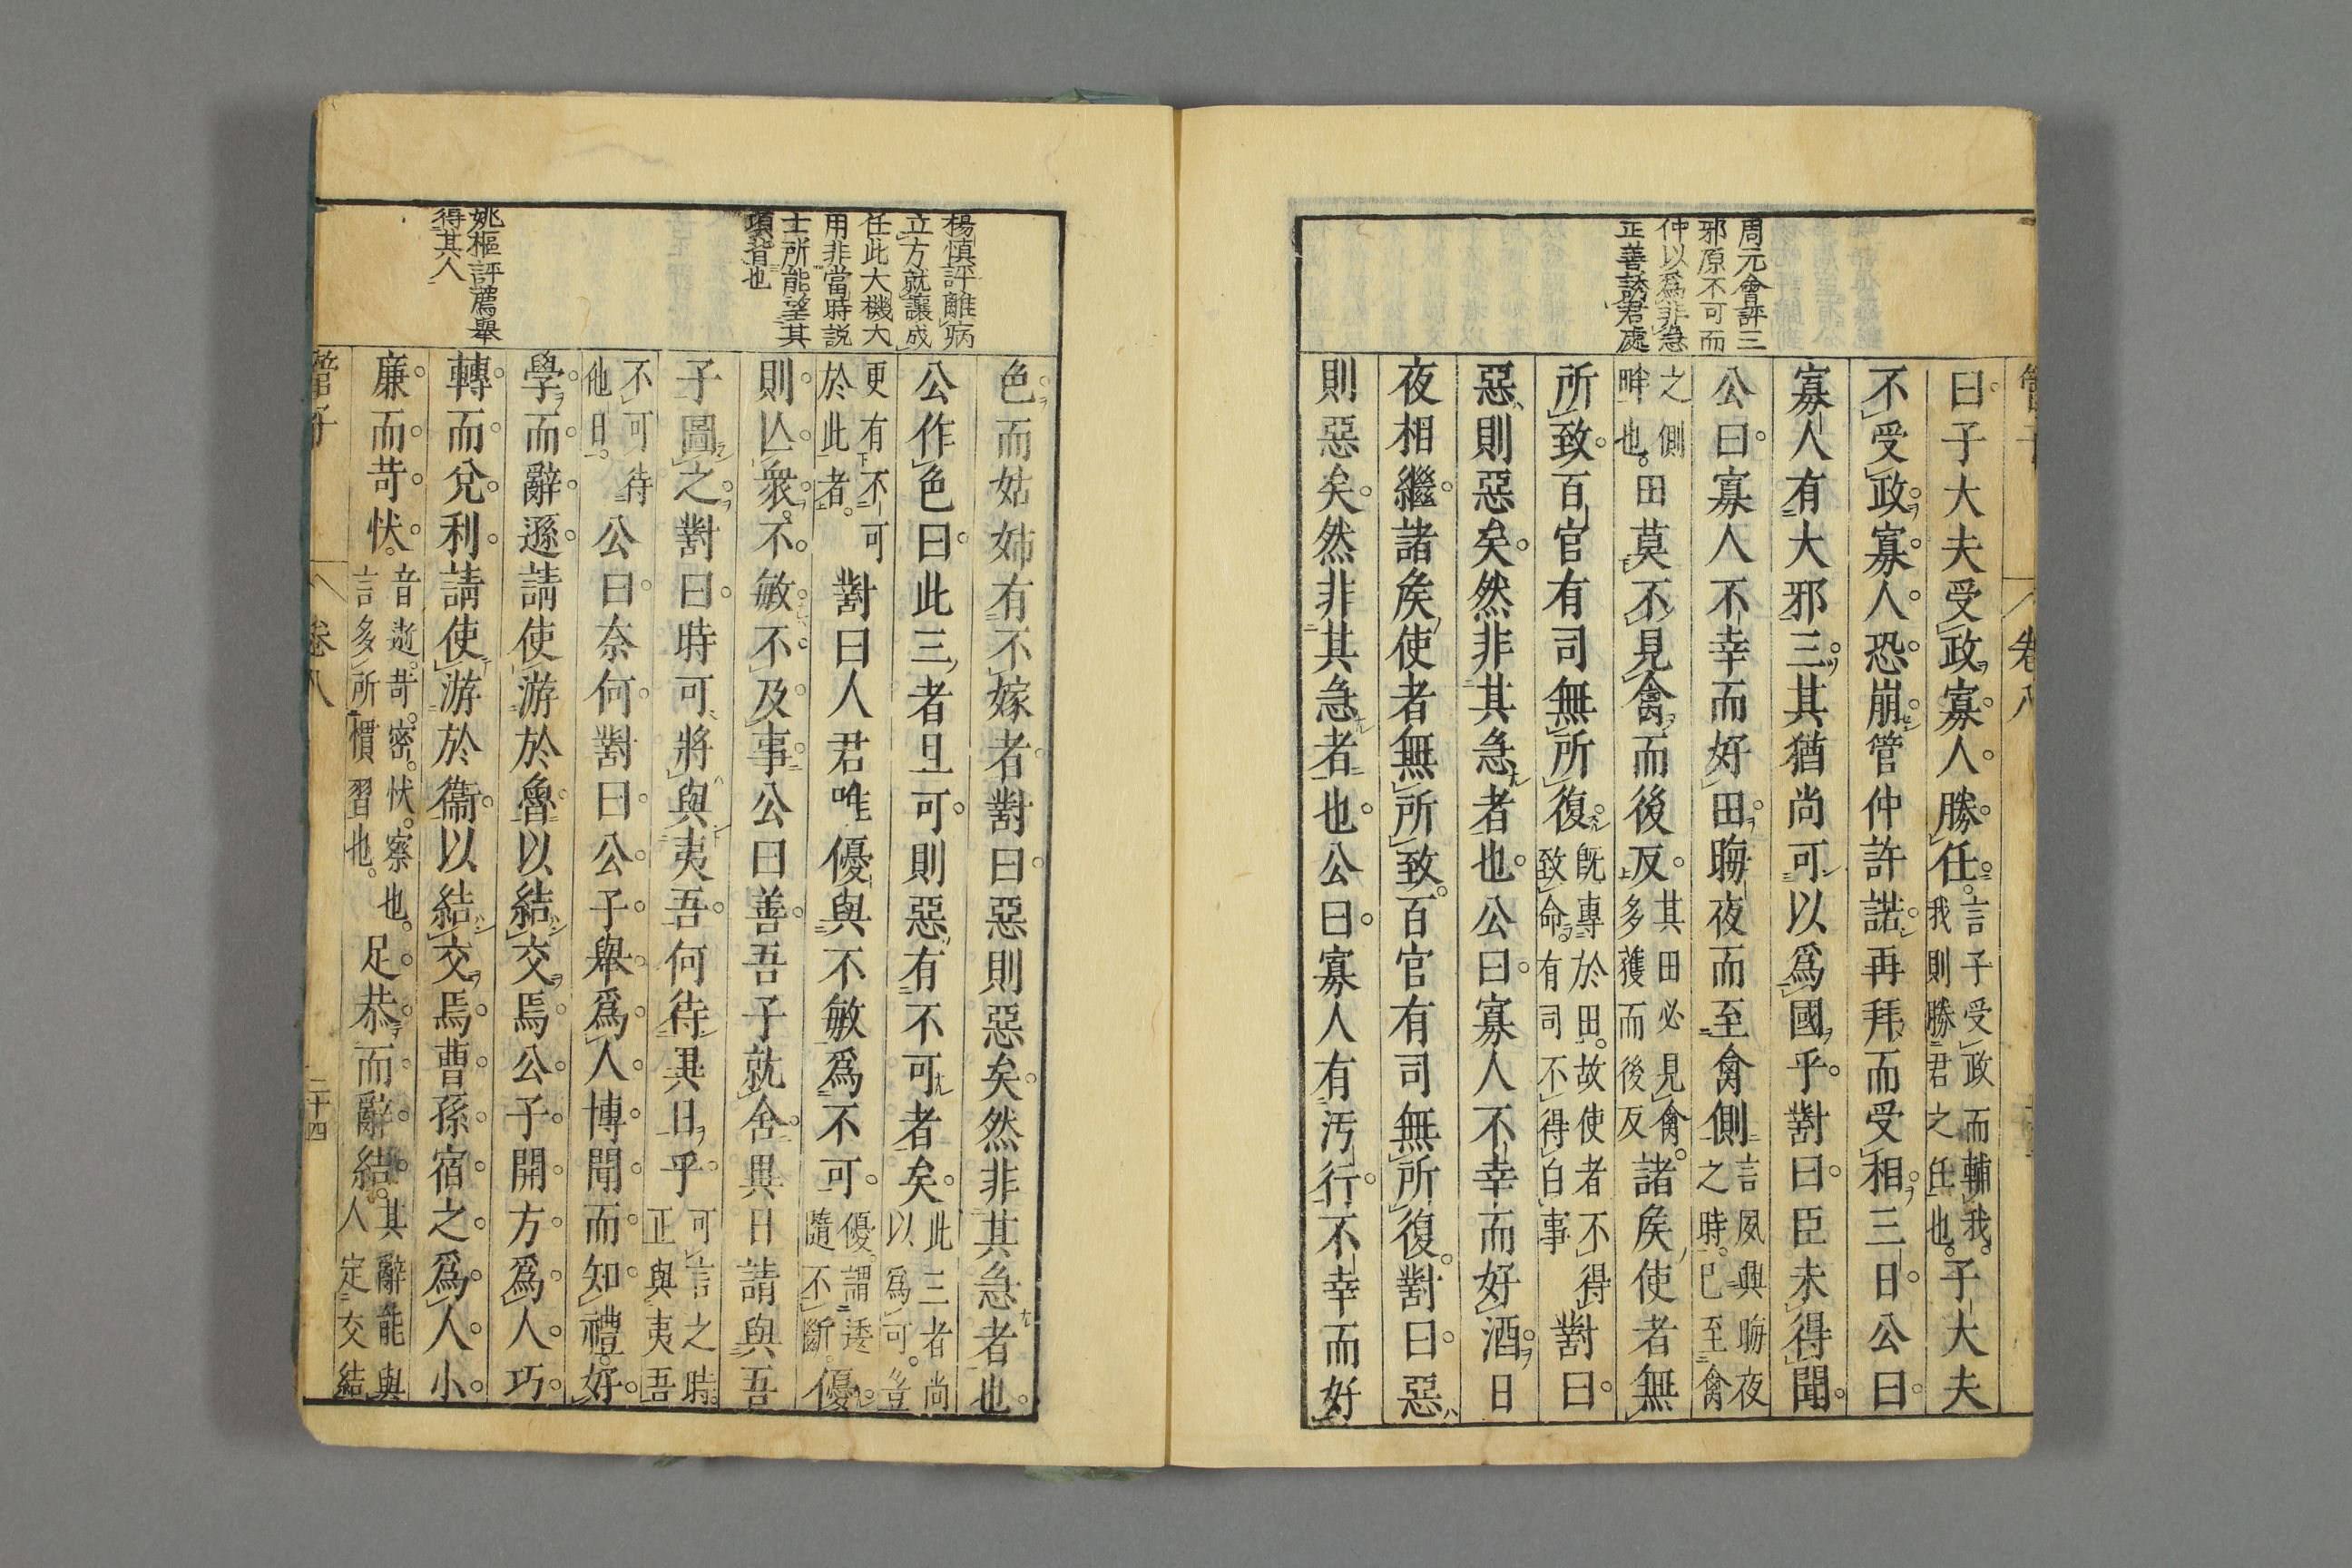 管子
卷八
周元會評三
邪原不可而
仲以爲非急
正善誘君處
曰子大夫受政寡人勝任言子受政而輔我我則勝君之任也子大夫
不受政寡人恐崩管仲許諾再拜而受相三日公曰
寡人有大邪三其猶尚可以爲國乎對曰臣未得聞
公曰寡人不幸而好田晦夜而至禽側言夙興晦夜之時已至禽
之側畔也田莫不見禽而後反其田必見禽多獲而後反諸矦使者無
所致百官有司無所復既專於田故使者不得致命有司不得白事對曰
惡則惡矣然非其急者也公曰寡人不幸而好酒日
夜相繼諸矦使者無所致百官有司無所復對曰惡
則惡矣然非其急者也公曰寡人有汚行不幸而好
楊慎評離病
立方就讓成
任此大機大
用非當時説
士所能望其
項背也
姚樞評薦舉
得其人
色而姑姊有不嫁者對曰惡則惡矣然非其急者也
公作色曰此三者且可則惡有不可者矣此三者尚以爲可豈
更有不可於此者對曰人君唯優與不敏爲不可優謂逶隨不斷優
則亾衆不敏不及事公曰善吾子就舍異日請與吾
子圖之對曰時可將與夷吾何待異日乎可言之時正與夷吾
不可待他日公曰奈何對曰公子舉爲人博聞而知禮好
學而辭遜請使游於魯以結交焉公子開方爲人巧
轉而兌利請使游於衞以結交焉曹孫宿之爲人小
廉而苛忕音逝苛密忕察也言多所慣習也足恭而辭結其辭能與人定交結
管子
卷八
二十四